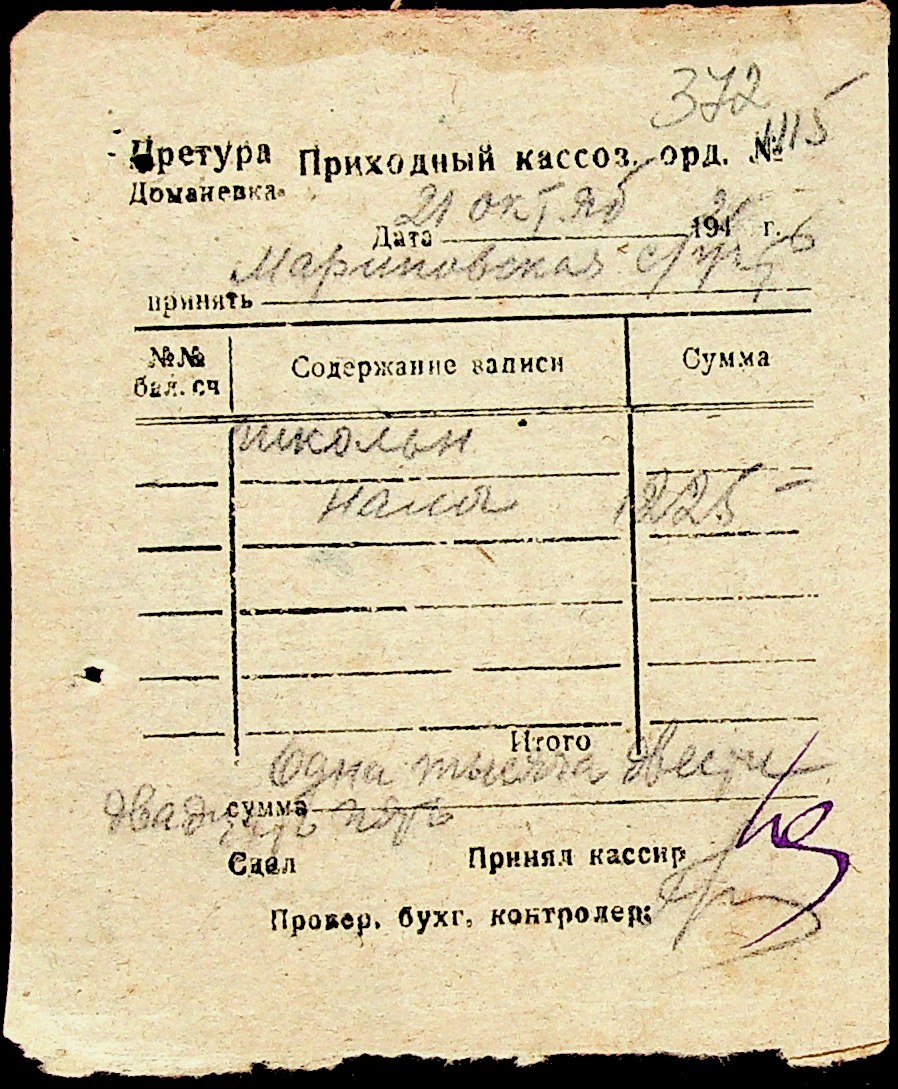 372
Претура Приходный кассов. орд. № 1115
Доманевка
Дата 21 октяб 194 г.
Мариновская с/
принять
№№ бал. сч Содержание записи Сумма
школьн
налог 1225 -
Итого
Одна тысяча двести
сумма двадцать пять
Сдал Принял кассир
Провер. бухг. контролер: